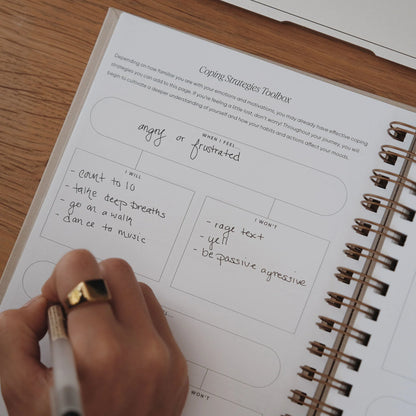 Coping Strategies Toolbox
Depending on how familiar you are with your emotions and motivations, you may already have effective coping
strategies you can add to this page. If you're feeling a little lost, don't worry! Throughout your journey, you will
begin to cultivate a deeper understanding of yourself and how your habits and actions affect your moods.
WHEN I FEEL...
angry or frustrated
I WILL
- count to 10
- take deep breaths
- go on a walk
- dance to music
I WON'T
- rage text
- yell
- be passive agressive
I WON'T